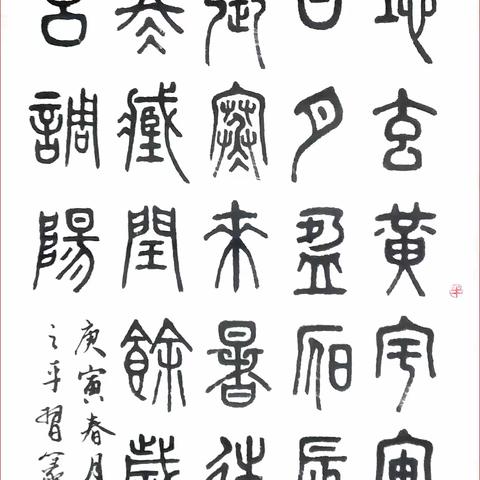 地玄黃宇宙
日月盈昃辰
寒來暑往
冬藏閏餘
呂調陽
庚寅春月
之平習篆